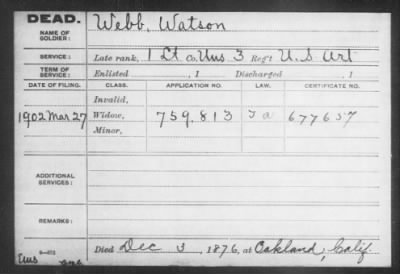 DEAD.
NAME OF SOLDIER:
Webb, Watson
SERVICE:
Late rank, 1 Lt Co. Uns 3 Reg't U.S Art
TERM OF SERVICE:
Enlisted , 1 Discharged , 1
DATE OF FILING. CLASS. APPLICATION NO. LAW. CERTIFICATE NO.
Invalid,
1902 Mar 27 Widow, 759.813 677657
Minor,
ADDITIONAL SERVICES:
REMARKS:
Died Dec 3, 1876, at Oakland, Calif